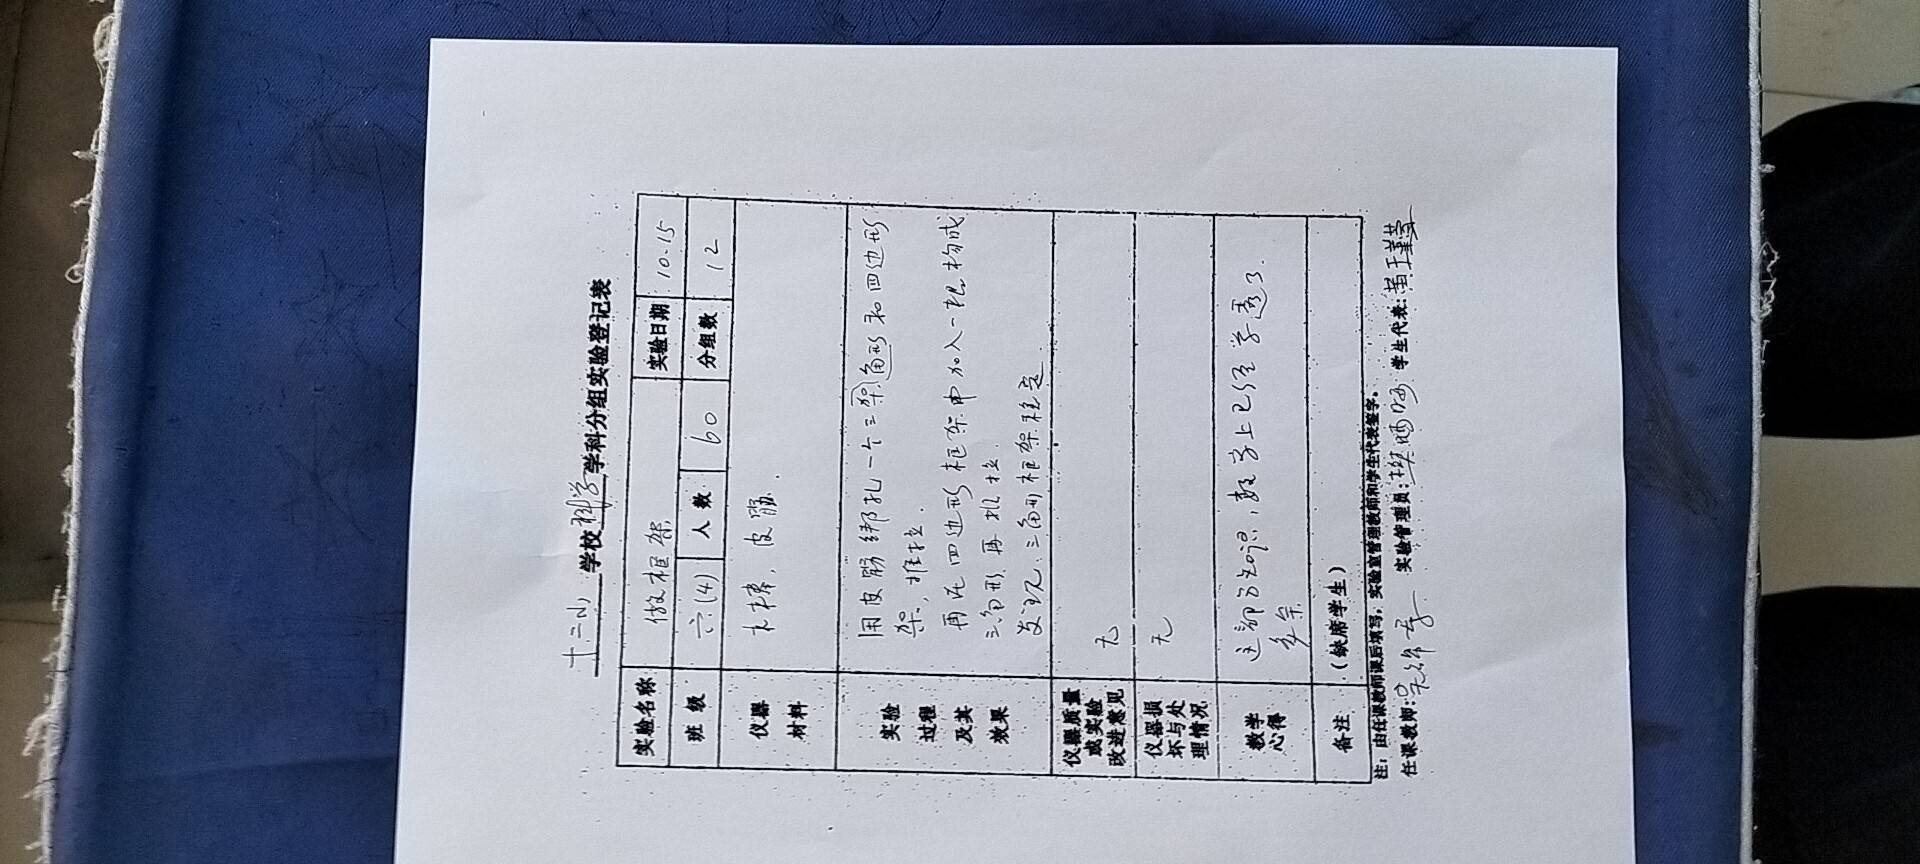 十二小 学校 科学 学科分组实验登记表
实验名称 做框架 实验日期 10.15
班级 六(4) 人数 60 分组数 12
仪器材料 木棒，皮筋．
实验过程及其效果
用皮筋绑扎一个三角形和四边形
架，推拉．
再在四边形框架中加入一根构成
三角形，再推拉
发现：三角形框架稳定
仪器质量或实验改进意见 无
仪器损坏与处理情况 无
教学心得 这部分知识，数学上已经学透了．
多余
备注 （缺席学生）
注：由任课教师课后填写，实验室管理教师和学生代表签字。
任课教师: 实验管理员: 学生代表: